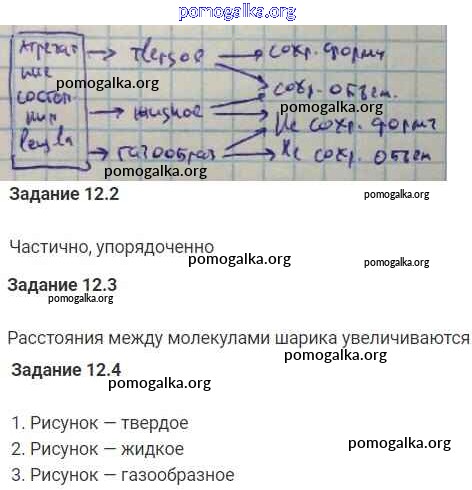 pomogalka.org
Агрегат твердое сохр. формы
ные pomogalka.org сохр. объем.
состоя- жидкое pomogalka.org
ния Не сохр. форму
вещ-ва газообраз Не сохр. объем
pomogalka.org
Задание 12.2 pomogalka.org
Частично, упорядоченно
pomogalka.org pomogalka.org
Задание 12.3
pomogalka.org
Расстояния между молекулами шарика увеличиваются
pomogalka.org
Задание 12.4
pomogalka.org
1. Рисунок — твердое
2. Рисунок — жидкое pomogalka.org
3. Рисунок — газообразное